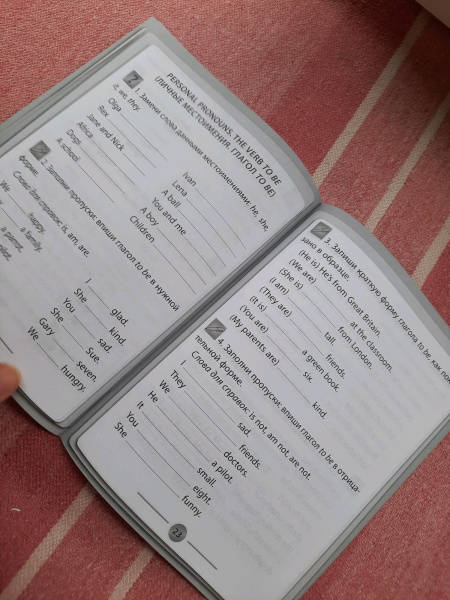 PERSONAL PRONOUNS. THE VERB TO BE
(ЛИЧНЫЕ МЕСТОИМЕНИЯ. ГЛАГОЛ TO BE)
1. Замени слова данными местоимениями: he, she,
it, we, they.
Olga Ivan
Rex Lena
Jane and Nick A ball
Africa You and me
Dogs A boy
A school Children
2. Заполни пропуски: впиши глагол to be в нужной
форме.
Слова для справок: is, am, are.
We happy. I glad.
a family. She kind.
a parrot. You sad.
a pilot. She Sue.
Gary seven.
We hungry.
3. Запиши краткую форму глагола to be, как
зано в образце.
(He is) He's from Great Britain.
(We are) at the classroom.
(She is) from London.
(I am) tall.
(They are) friends.
(It is) a green book.
(You are) six.
(My parents are) kind.
4. Заполни пропуски: впиши глагол to be в отрица-
тельной форме.
Слова для справок: is not, am not, are not.
I sad.
They friends.
We doctors.
He a pilot.
It small.
You eight.
She funny.
23